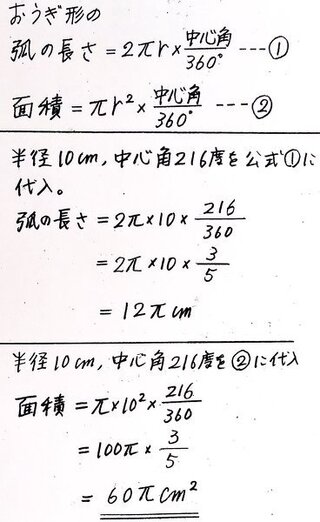 おうぎ形の
弧の長さ = 2πr × 中心角/360° ---①
面積 = πr² × 中心角/360° ---②
半径10cm, 中心角216度を公式①に
代入。
弧の長さ = 2π×10× 216/360
= 2π×10× 3/5
= 12πcm
半径10cm, 中心角216度を②に代入
面積 = π×10²× 216/360
= 100π × 3/5
= 60πcm²